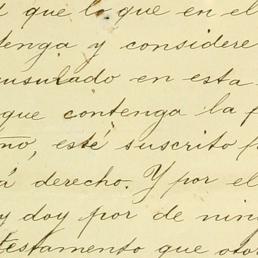 que lo que en el
tenga y considere
nsulado en esta
que contenga la f
mo, esté suscrito p
á derecho. Y por el
y doy por de nin
testamento que otor